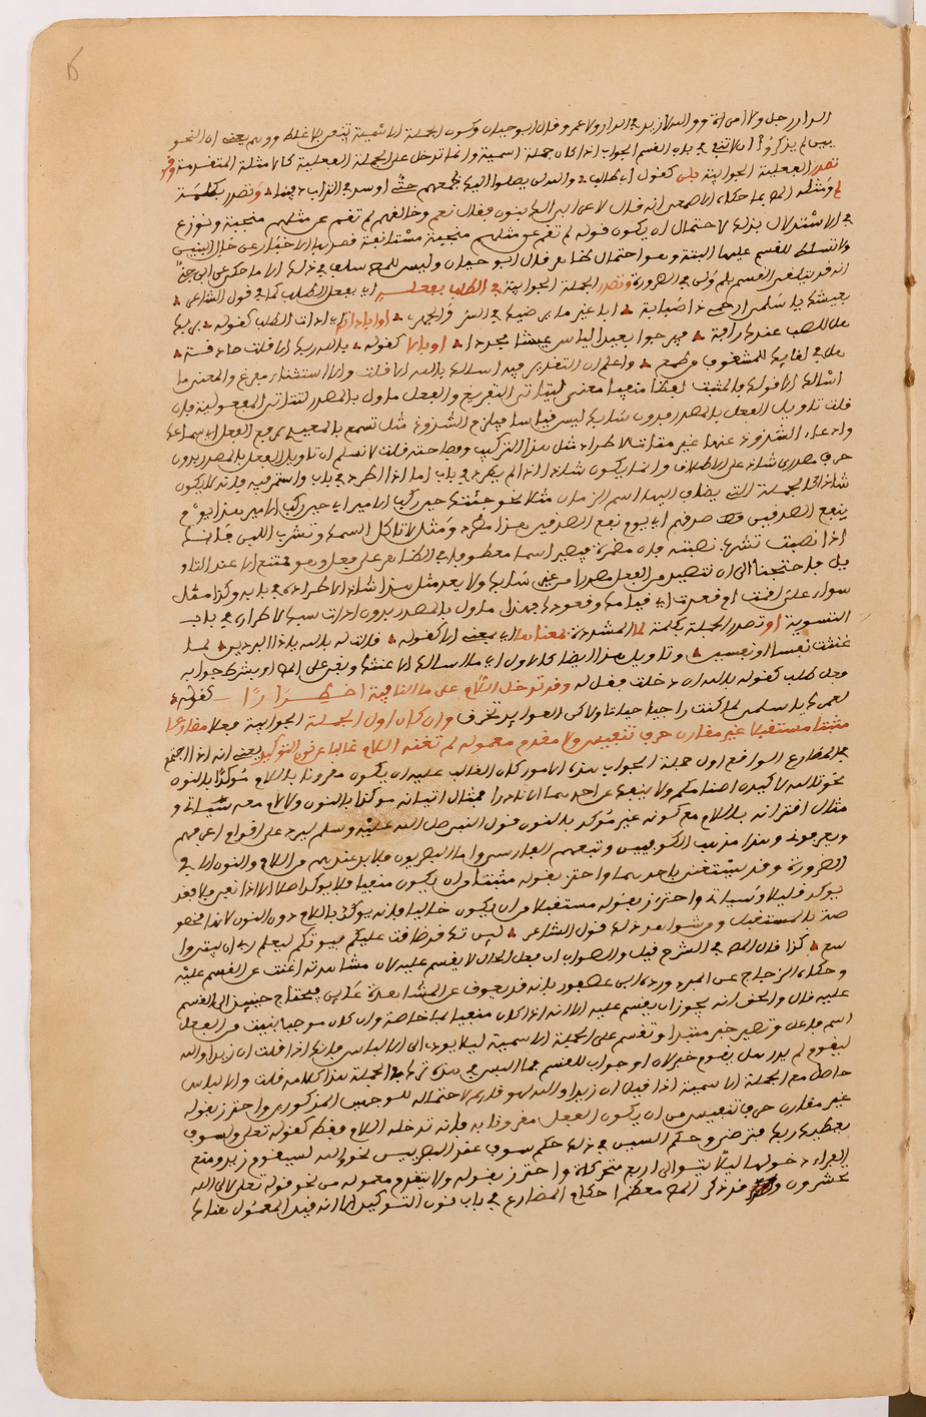 الدار رجل ولا امرأة و والله لا زيد في الدار ولا عمرو وقال ابو حيان وكون الجملة الاسمية تنفى بلا غلط ووهم يعني ان النحو
يين لم يذكروا ان لا تنفي في باب القسم الجواب اذا كان جملة اسمية وانما تدخل على الجملة الفعلية كالامثلة المتقدمة وقد
تصدر الفعلية الجوابية بلن كقول ابي طالب والله لن يصلوا اليك بجمعهم حتى اوسد في التراب دفينا وتصدر بكلمة
لم ومثله المص بما حكاه الاصمعي انه قال لاعرابي الك بنون فقال نعم وخالقهم لم تقم عن مثلهم منجبة ونوزع
في الاستدلال بذلك لاحتمال ان يكون قوله لم تقم عن مثلهم منجبة مستانفة قصد بها الاخبار عن حال البنين
ولا تسلط للقسم عليها البتة وهو احتمال ظاهر قال ابو حيان وليس للمص سلف في ذلك الا ما حكي عن ابن جني
انه قد يتلقى القسم بلم ولن في الضرورة وتصدر الجملة الجوابية في الطلب بفعله اي بفعل الطلب كما في قول الشاعر
بعيشك يا سلمى ارحمي ذا صبابة ابى غير ما يرضيك في السر والجهر او باداته اي ادات الطلب كقوله بربك
هل للصب عندك رافة فيرجو ابعد الياس عيشا مجددا او بالا كقوله بالله ربك الا قلت صادقة
هل في لقائك للمشغوف من طمع واعلم ان التقدير فيه اسالك بالله الا قلت والاستثناء مفرغ والمعنى ما
اسالك الا قولك فالمثبت لفظا منفي معنى ليتاتى التفريغ والفعل ماول بالمصدر لتتاتى المفعولية فان
قلت تاويل الفعل بالمصدر بدون سابك ليس قياسا فيلزم الشذوذ مثل تسمع بالمعيدي برفع الفعل اي سماعك
وادعاء الشذوذ عنها غير متات لاطراد مثل هذا التركيب وفصاحته قلت لا نسلم ان تاويل الفعل بالمصدر بدون
حرف مصدري شاذ على الاطلاق وانما يكون شاذا اذا لم يطرد في باب اما اذا اطرد في باب واستمر فيه فانه لا يكون
شاذا كالجملة التي يضاف اليها اسم الزمان مثلا نحو جئتك حين ركب الامير اي حين ركوب الامير هذا يوم
ينفع الصادقين صدقهم اي يوم نفع الصادقين هذا مطرد ومثل لا تاكل السمك وتشرب اللبن فانك
اذا نصبت تشرب نصبته بان مضمرة فيصير اسما معطوفا في الظاهر على فعل وهو ممتنع الا عند التاو
يل فاحتجنا الى ان نتصيد من الفعل مصدرا من غير سابك ولا يعد مثل هذا شاذا لاطراده في بابه وكذا مثل
سواء علي اقمت ام قعدت اي قيامك وقعودك فهذا ماول بالمصدر بدون ادات سبك لاطراده في باب
التسوية او تصدر الجملة بكلمة لما المشددة بمعناها اي بمعنى الا كقوله قالت له بالله يا ذا البردين لما
غنثت نفسا او نفسين وتاويل هذا ايضا كالاول اي ما اسالك الا غنثك وبقي على المص او بشرط جوابه
وقد تدخل اللام على ما النافية اضطرارا كقوله
لعمرك يا سلمى لما كنت راجيا حياتا ولاكن العوايد تخرق وان كان اول الجملة الجوابية فعلا مضارعا
مثبتا مستقبلا غير مقارن حرف تنفيس ولا مقدم معموله لم تغنه اللام غالبا عن نون التوكيد يعني انه اذا اجتمع
في المضارع الواقع اول جملة الجواب هذه الامور كان الغالب عليه ان يكون مقرونا باللام مؤكدا بالنون
نحو تالله لاكيدن اصنامكم ولا ينفك عن احدهما الا نادرا فمثال اتيانه موكدا بالنون ولا لام معه
مثال اقترانه باللام مع كونه غير مؤكد بالنون قول النبي صلى الله عليه وسلم ليرد علي اقوام اعرفهم
ويعرفونني وهذا مذهب الكوفيين وتبعهم الفارسي واما البصريون فلا بد عندهم من اللام والنون الا في
الضرورة وقد يستغنى باحدهما واحترز بقوله مثبتا من ان يكون منفيا فلا يوكد اصلا الا اذا نفي بلا فقد
يوكد قليلا وسياتي واحترز بقوله مستقبلا من ان يكون حالا فانه يوكد باللام دون النون لانها مخصو
صة بالمستقبل ومن شواهد ذلك قول الشاعر لئن تك قد ضاقت عليكم بيوتكم ليعلم ربي ان بيتي وا
سع كذا قال المص في الشرح قيل والصواب ان فعل الحال لا يقسم عليه لان مشاهدته اغنت عن القسم عليه
وحكاه الزجاج عن المبرد ورده ابن عصفور بانه قد يعوق عن المشاهدة عائق فيحتاج حينئذ الى القسم
عليه قال والحق انه يجوز ان يقسم عليه الا انه اذا كان منفيا بما خاصة وان كان موجبا بنيت من الفعل
اسم فاعل وتصيره خبر مبتدا وتقسم على الجملة الاسمية ليلا يودي الى الالباس فانك اذا قلت ان زيدا والله
ليقوم لم يدر هل يقوم خبر لان او جواب للقسم
حاصل مع الجملة الاسمية اذا قيل ان زيدا والله لهو قايم لاحتماله للوجهين المذكورين واحترز بقوله
غير مقارن حرف تنفيس من ان يكون الفعل مقرونا به فانه تدخله اللام فقط كقوله تعلى ولسوف
يعطيك ربك فترضى وحكم السين في ذلك حكم سوف عند البصريين نحو والله لسيقوم زيد ومنع
الفراء دخولها ليلا يتوالى اربع متحركات واحترز بقوله ولا مقدم معموله من نحو قوله تعلى لالى الله
تحشرون وقد ذكر المص معظم احكام المضارع في باب نون التوكيد الا انه قيد المعمول هناك